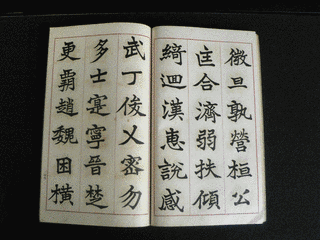 微旦孰營桓公
匡合濟弱扶傾
綺迴漢惠說感
武丁俊乂密勿
多士寔寧晉楚
更霸趙魏困橫